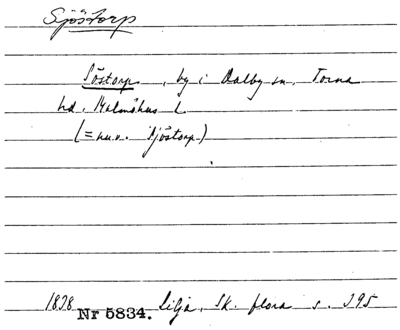 Sjöstorp
Söstorp, by i Dalby sn, Torna
hd, Malmöhus l.
(= nuv. Sjöstorp)
1838 Nr 5834. Lilja, Sk. flora s. 395